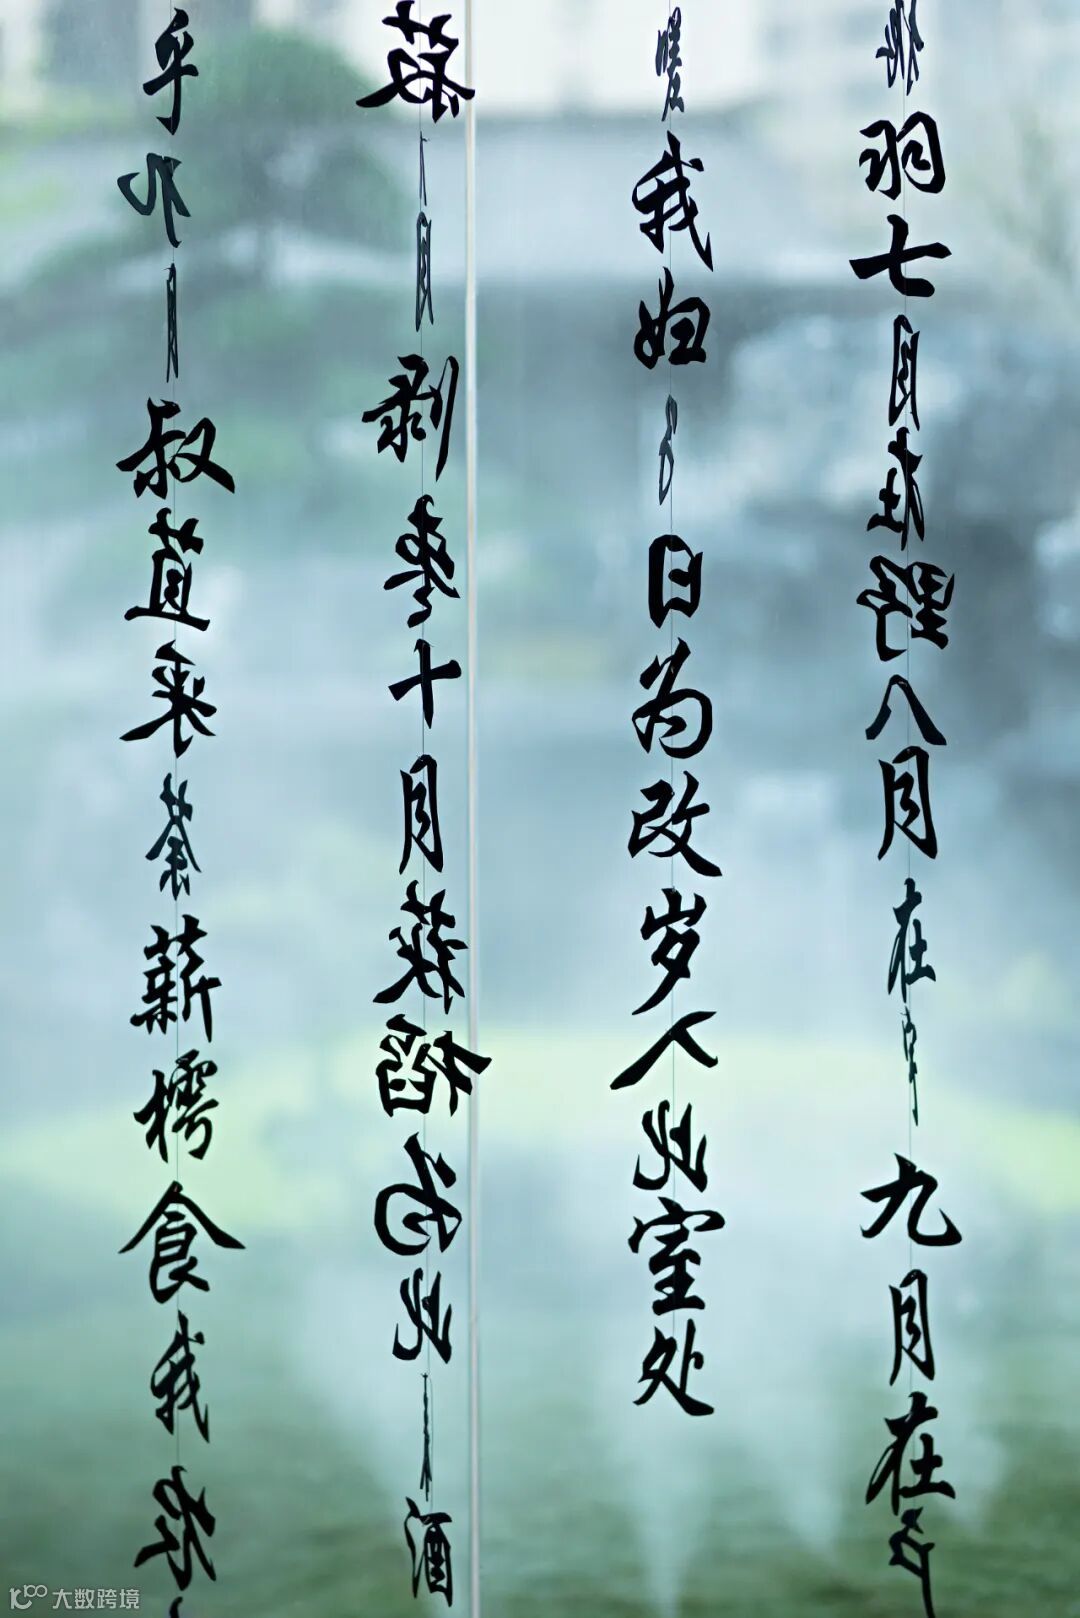 羽七月在野八月在宇九月在户
嗟我妇子曰为改岁入此室处
菽八月剥枣十月获稻为此春酒
乎九月叔苴采荼薪樗食我农
大数跨境